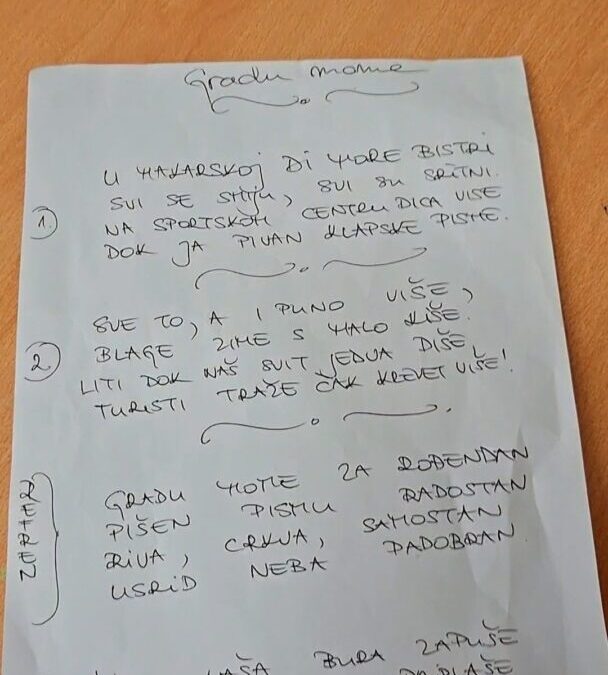 Gradu mome
1.
U MAKARSKOJ DI MORE BISTRI
SVI SE SMIJU, SVI SU SRITNI.
NA SPORTSKOM CENTRU DICA VISE
DOK JA PIVAN KLAPSKE PISME.
2.
SVE TO, A I PUNO VIŠE,
BLAGE ZIME S MALO KIŠE.
LITI DOK NAŠ SVIT JEDVA DIŠE,
TURISTI TRAŽE ČAK KREVET VIŠE!
GRADU MOME ZA ROĐENDAN
PIŠEN PISMU RADOSTAN
RIVA, CRKVA, SAMOSTAN
USRID NEBA PADOBRAN
BURA ZAPUŠE